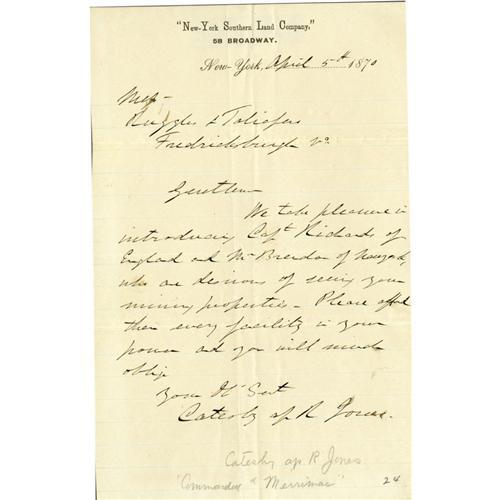 "New-York Southern Land Company,"
58 BROADWAY.
New-York, April 5th 1870
Mess-
Ruggles & Taliafero
Fredricksburgh Va
Gentlemen
We take pleasure in
introducing Capt Richards of
England and Mr Brendon of
who are desirous of seeing your
mining properties - Please afford
them every facility in your
power and you will much
oblige
Your Ob Sevt
Catesby ap R Jones.
Catesby ap. R Jones
"Commander of Merrimac"
24